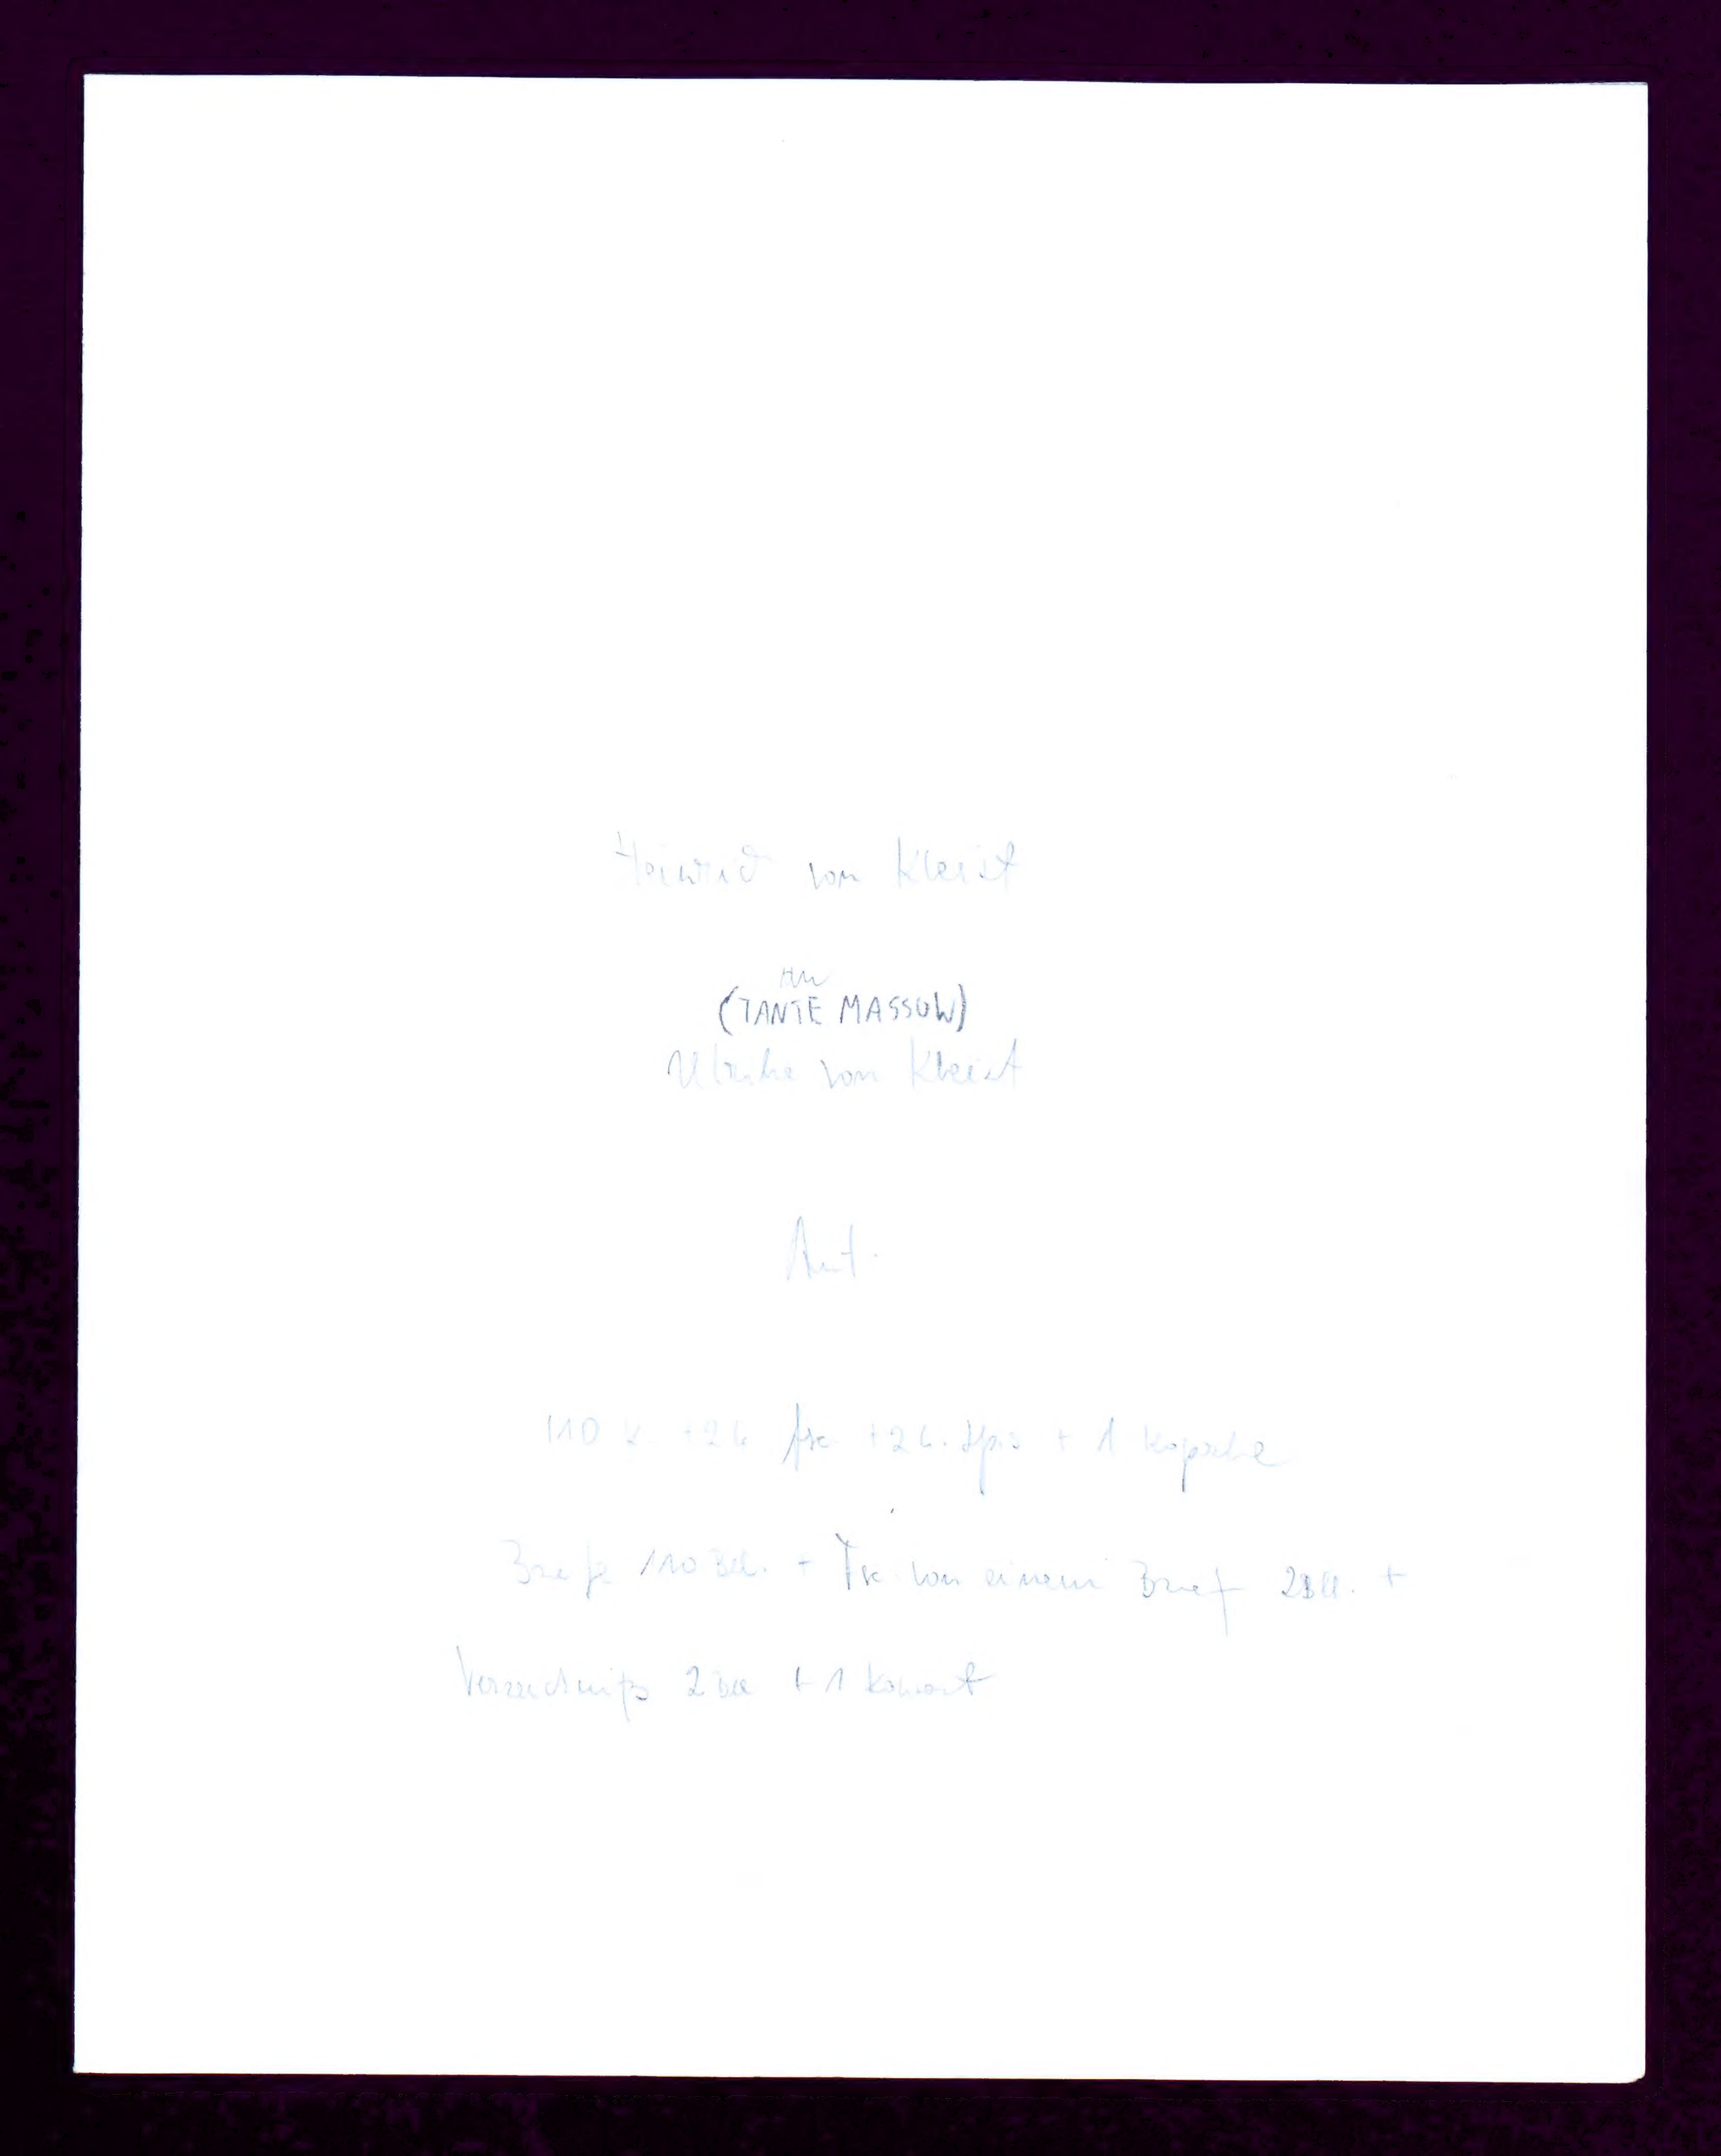 Heinrich von Kleist
an
(TANTE MASSOW)
Ulrike von Kleist
Aut.
110 + 1 Kapsel
Briefe 110 Bll. + Fsc. von einem Brief 2 Bll. +
Verzeichniß 2 Bll + 1 Kuvert